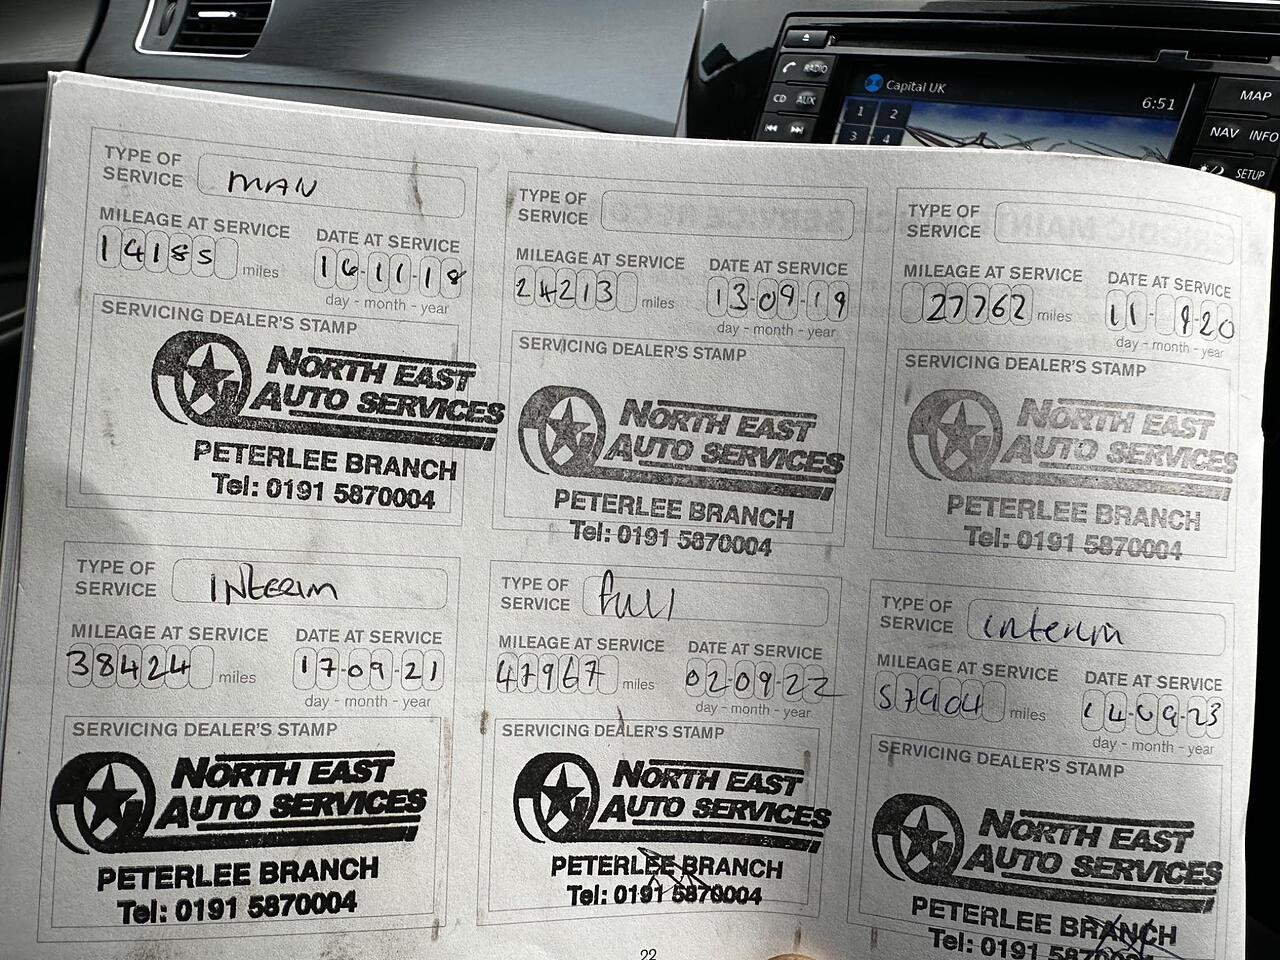 Capital UK
6:51
RADIO
CD AUX
1 2
3 4
MAP
NAV INFO
SETUP
TYPE OF SERVICE MAN
MILEAGE AT SERVICE DATE AT SERVICE
14185 miles 16-11-18
day - month - year
SERVICING DEALER'S STAMP
NORTH EAST
AUTO SERVICES
PETERLEE BRANCH
Tel: 0191 5870004
TYPE OF SERVICE
MILEAGE AT SERVICE DATE AT SERVICE
24213 miles 13-09-19
day - month - year
SERVICING DEALER'S STAMP
NORTH EAST
AUTO SERVICES
PETERLEE BRANCH
Tel: 0191 5870004
TYPE OF SERVICE
MILEAGE AT SERVICE DATE AT SERVICE
27762 miles 11- 9-20
day - month - year
SERVICING DEALER'S STAMP
NORTH EAST
AUTO SERVICES
PETERLEE BRANCH
Tel: 0191 5870004
TYPE OF SERVICE INTERIM
MILEAGE AT SERVICE DATE AT SERVICE
38424 miles 17-09-21
day - month - year
SERVICING DEALER'S STAMP
NORTH EAST
AUTO SERVICES
PETERLEE BRANCH
Tel: 0191 5870004
TYPE OF SERVICE full
MILEAGE AT SERVICE DATE AT SERVICE
47967 miles 02-09-22
day - month - year
SERVICING DEALER'S STAMP
NORTH EAST
AUTO SERVICES
PETERLEE BRANCH
Tel: 0191 5870004
TYPE OF SERVICE interim
MILEAGE AT SERVICE DATE AT SERVICE
57904 miles 14-09-23
day - month - year
SERVICING DEALER'S STAMP
NORTH EAST
AUTO SERVICES
PETERLEE BRANCH
Tel: 0191 5870004
22